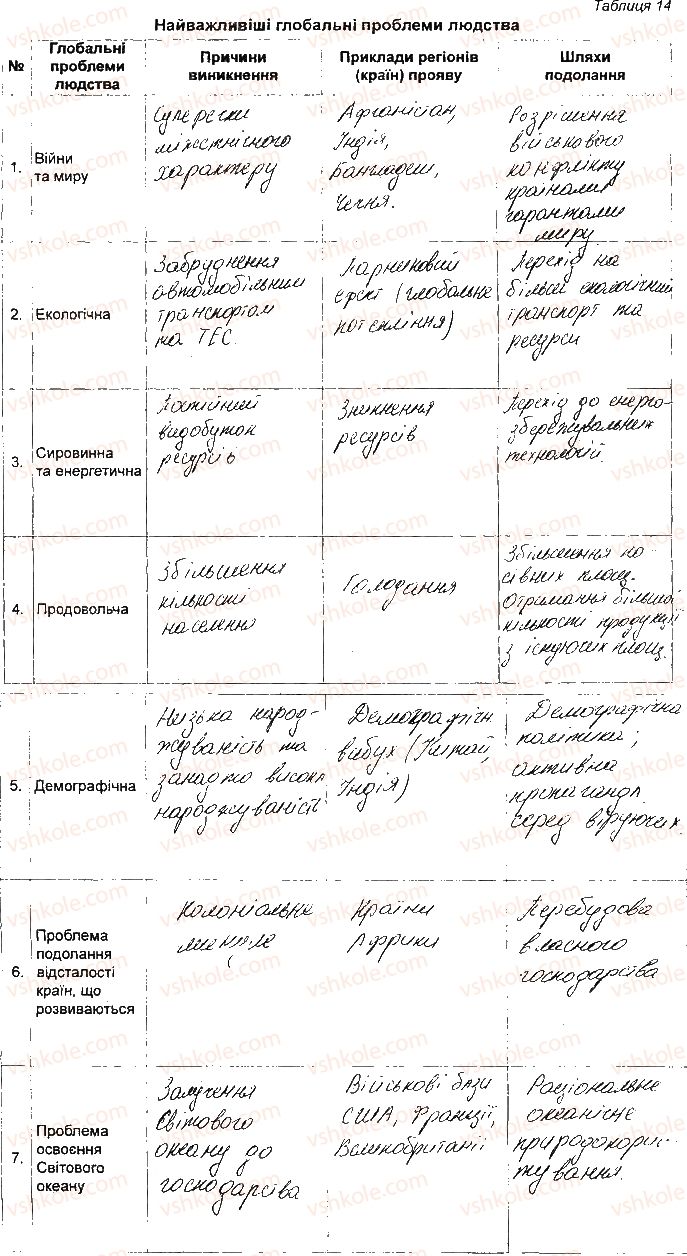 Таблиця 14
Найважливіші глобальні проблеми людства
№
Глобальні
проблеми
людства
Причини
виникнення
Приклади регіонів
(країн) прояву
Шляхи
подолання
1.
Війни
та миру
Суперечки
міжетнічного
характеру
Афганістан,
Індія,
Бангладеш,
Чечня.
Розрішення
військового
конфлікту
країнами
гарантами
миру
2.
Екологічна
Забруднення
автомобільним
транспортом
та ТЕС.
Парниковий
ефект (глобальне
потепління)
Перехід на
більш екологічний
транспорт та
ресурси
3.
Сировинна
та енергетична
Постійний
видобуток
ресурсів
Зникнення
ресурсів
Перехід до енерго-
збережувальних
технологій.
4.
Продовольча
Збільшення
кількості
населення
Голодання
Збільшення по-
сівних площ.
Отримання більшої
кількості продукції
з існуючих площ.
5.
Демографічна
Низька народ-
жуваність та
занадто висока
народжуваність
Демографічн
вибух (Китай,
Індія)
Демографічна
політика;
активна
пропаганда
серед віруючих.
6.
Проблема
подолання
відсталості
країн, що
розвиваються
Колоніальне
минуле
Країни
Африки
Перебудова
власного
господарства
7.
Проблема
освоєння
Світового
океану
Залучення
Світового
океану до
господарства
Військові бази
США, Франції,
Великобританії
Раціональне
океанічне
природокорис-
тування.
vshkole.com